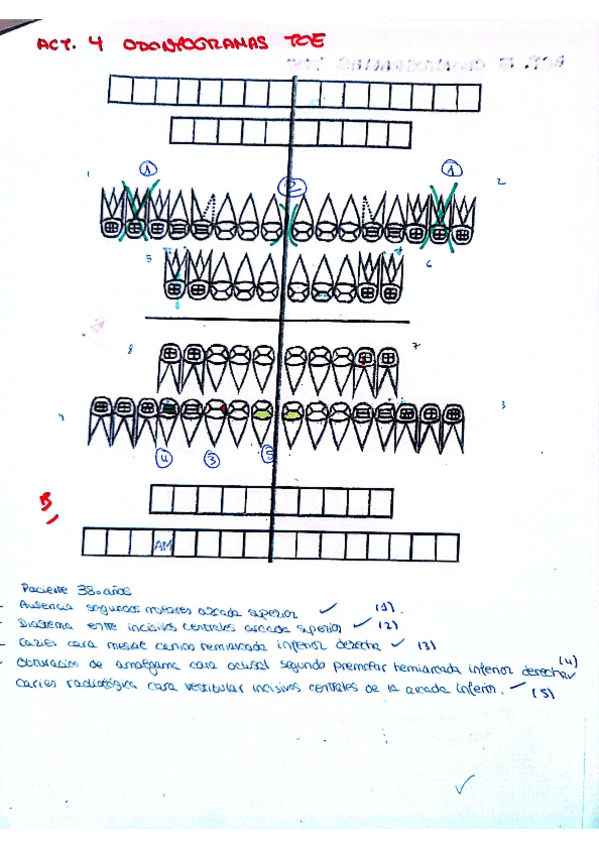 ACT. 4 ODONTOGRAMAS TOE
1 1
1 2 2
5 6
8 7
4 3
4 3 5
B,
AM
Paciente 38 años
- Ausencia segundos molares arcada superior ✓ (1).
- Diastema entre incisivos centrales arcada superior ✓ (2)
- Caries cara mesial canino hemiarcada inferior derecha ✓ (3)
- Obturación de amalgama cara oclusal segundo premolar hemiarcada inferior derecha ✓ (4)
Caries radiológica cara vestibular incisivos centrales de la arcada inferior. ✓ (5)
✓